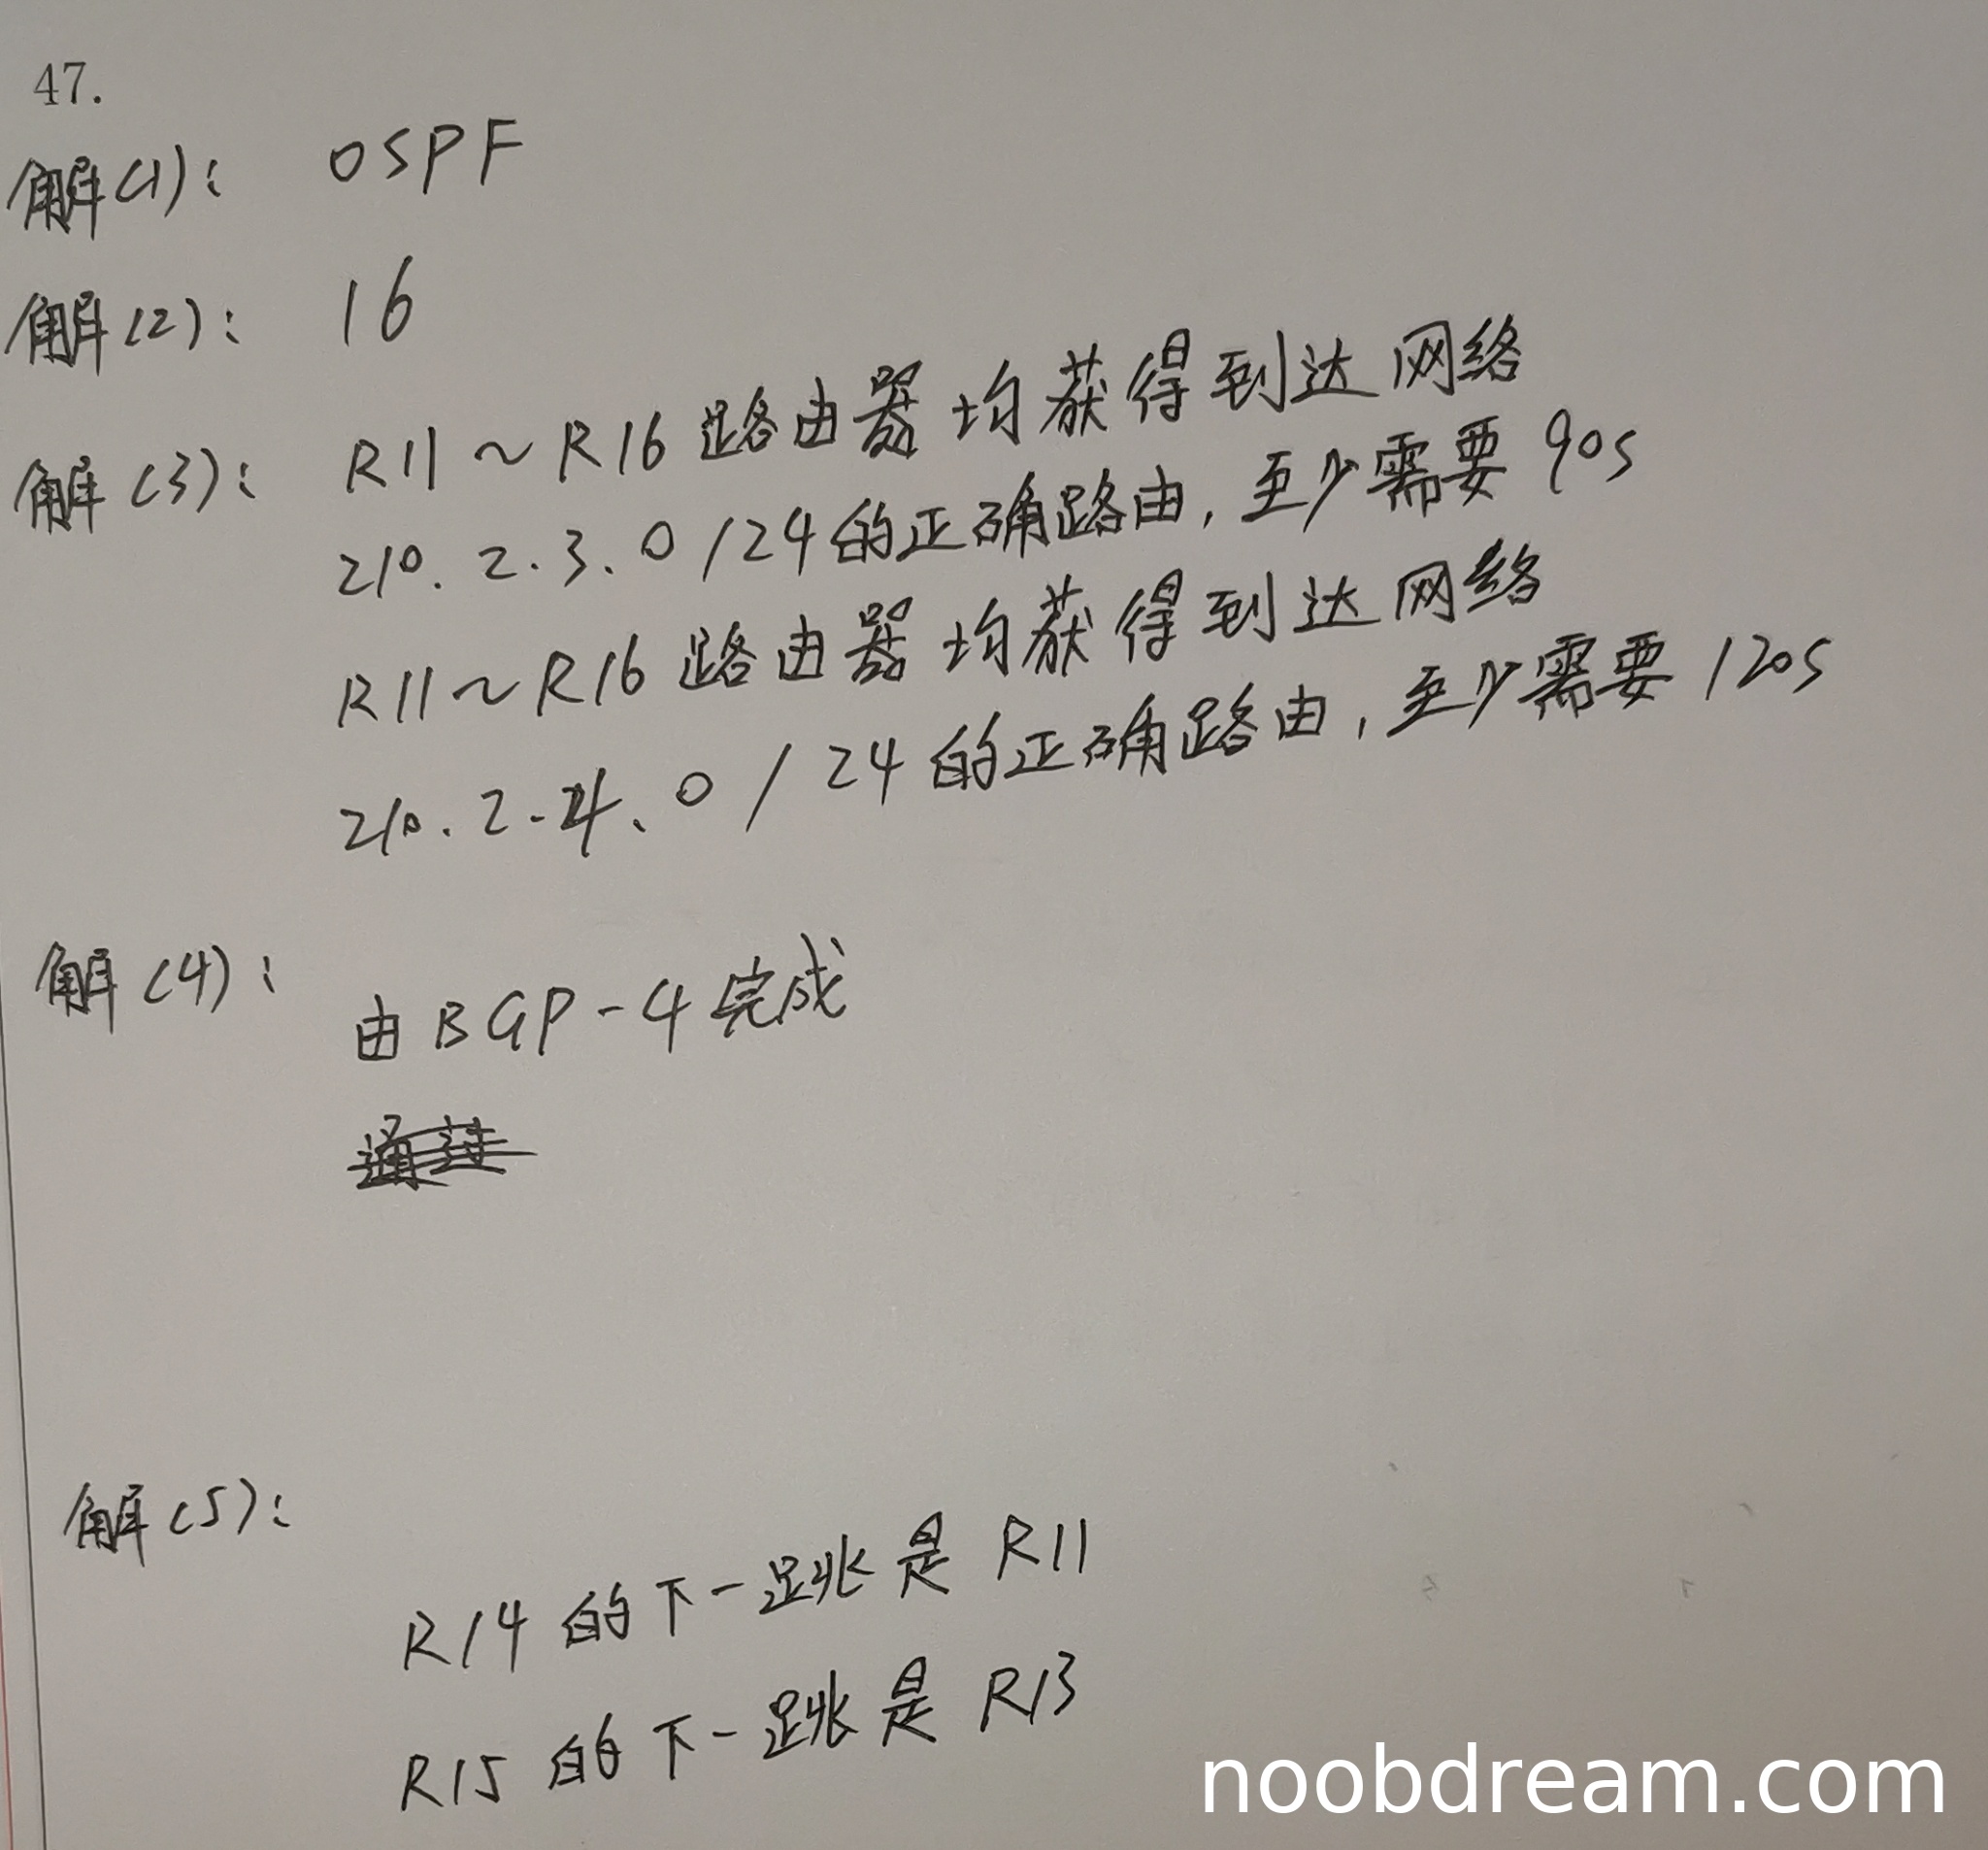 47.
解(1): OSPF
解(2): 16
解(3): R11~R16路由器均获得到达网络
210.2.3.0/24的正确路由,至少需要90s
R11~R16路由器均获得到达网络
210.2.4.0/24的正确路由,至少需要120s
解(4):
由BGP-4完成
解(5):
R14的下一跳是R11
R15的下一跳是R13
noobdream.com